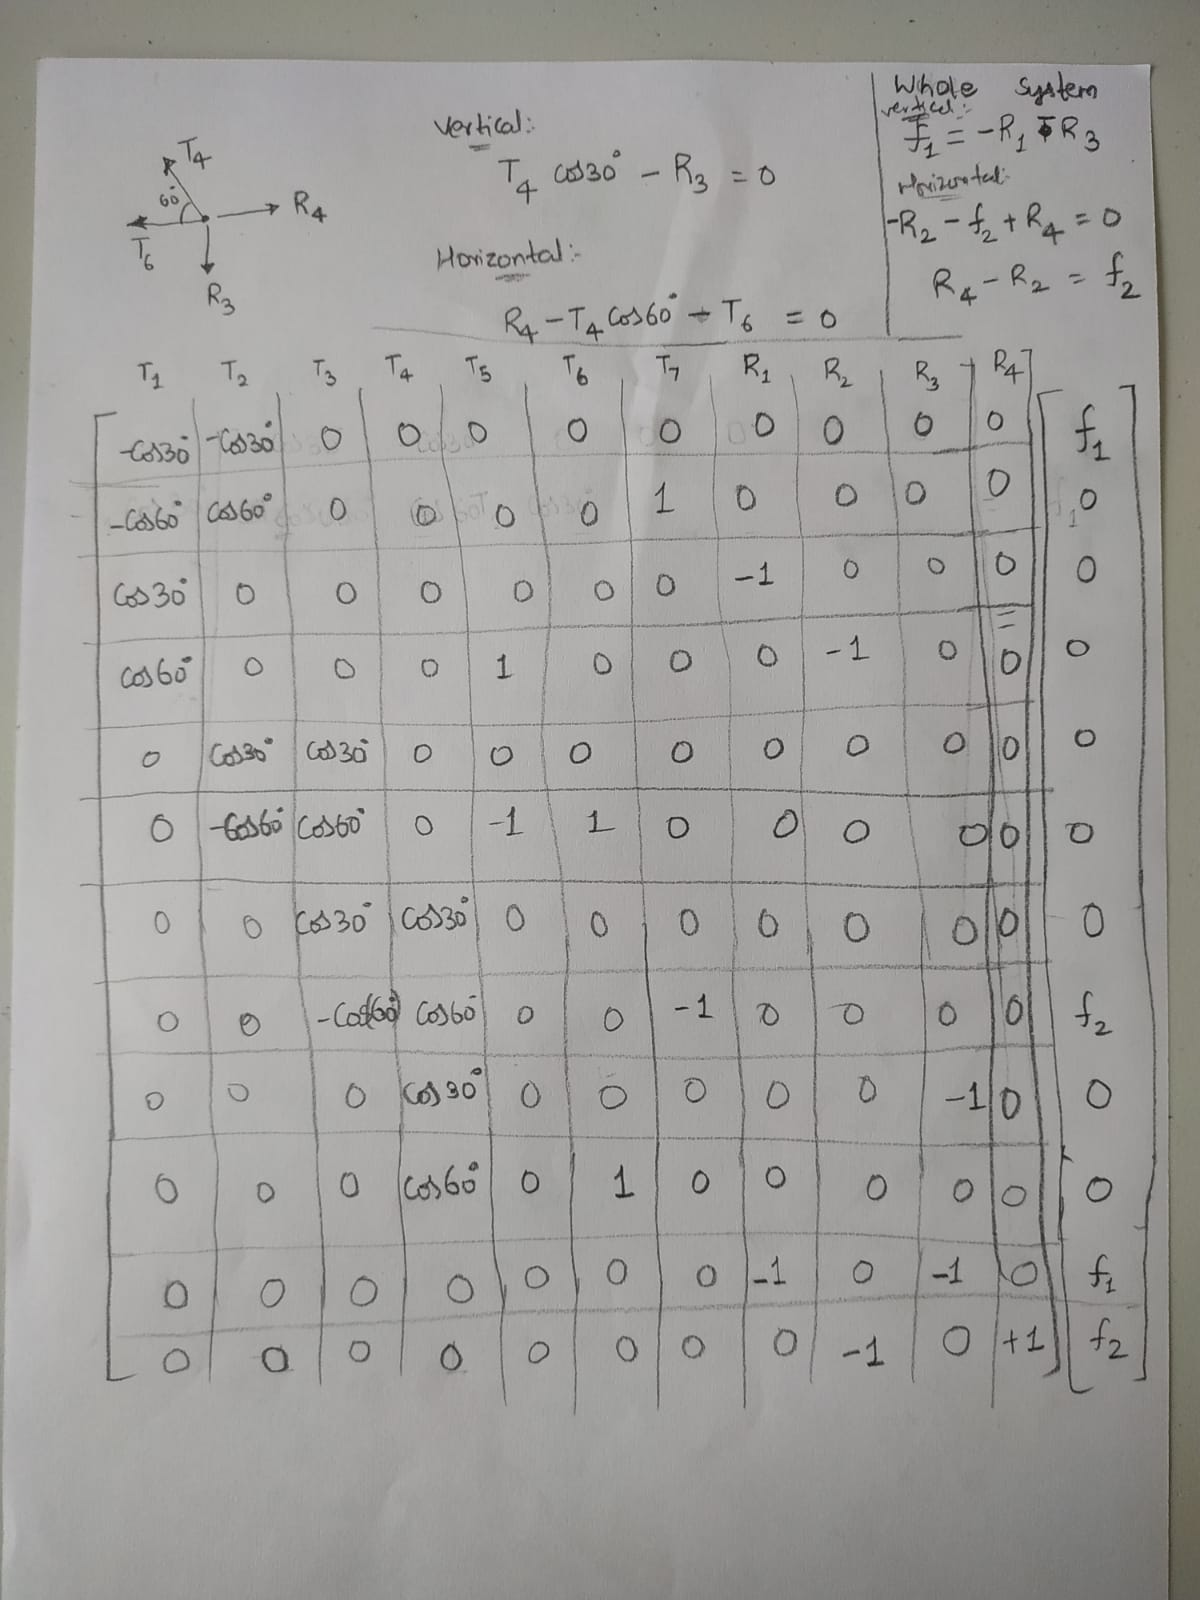 T₄
60°
R₄
T₆
R₃
Vertical:-
T₄ cos30° - R₃ = 0
Horizontal:-
R₄ - T₄ cos60° - T₆ = 0
Whole System
vertical:-
f₁ = -R₁ - R₃
Horizontal:-
-R₂ - f₂ + R₄ = 0
R₄ - R₂ = f₂
T₁ T₂ T₃ T₄ T₅ T₆ T₇ R₁ R₂ R₃ R₄
-cos30° -cos30° 0 0 0 0 0 0 0 0 0 f₁
-cos60° cos60° 0 0 0 0 1 0 0 0 0 0
cos30° 0 0 0 0 0 0 -1 0 0 0 0
cos60° 0 0 0 1 0 0 0 -1 0 0 0
0 cos30° cos30° 0 0 0 0 0 0 0 0 0
0 -cos60° cos60° 0 -1 1 0 0 0 0 0 0
0 0 cos30° cos30° 0 0 0 0 0 0 0 0
0 0 -cos(60°) cos60° 0 0 -1 0 0 0 0 f₂
0 0 0 cos30° 0 0 0 0 0 -1 0 0
0 0 0 cos60° 0 1 0 0 0 0 0 0
0 0 0 0 0 0 0 -1 0 -1 0 f₁
0 0 0 0 0 0 0 0 -1 0 +1 f₂